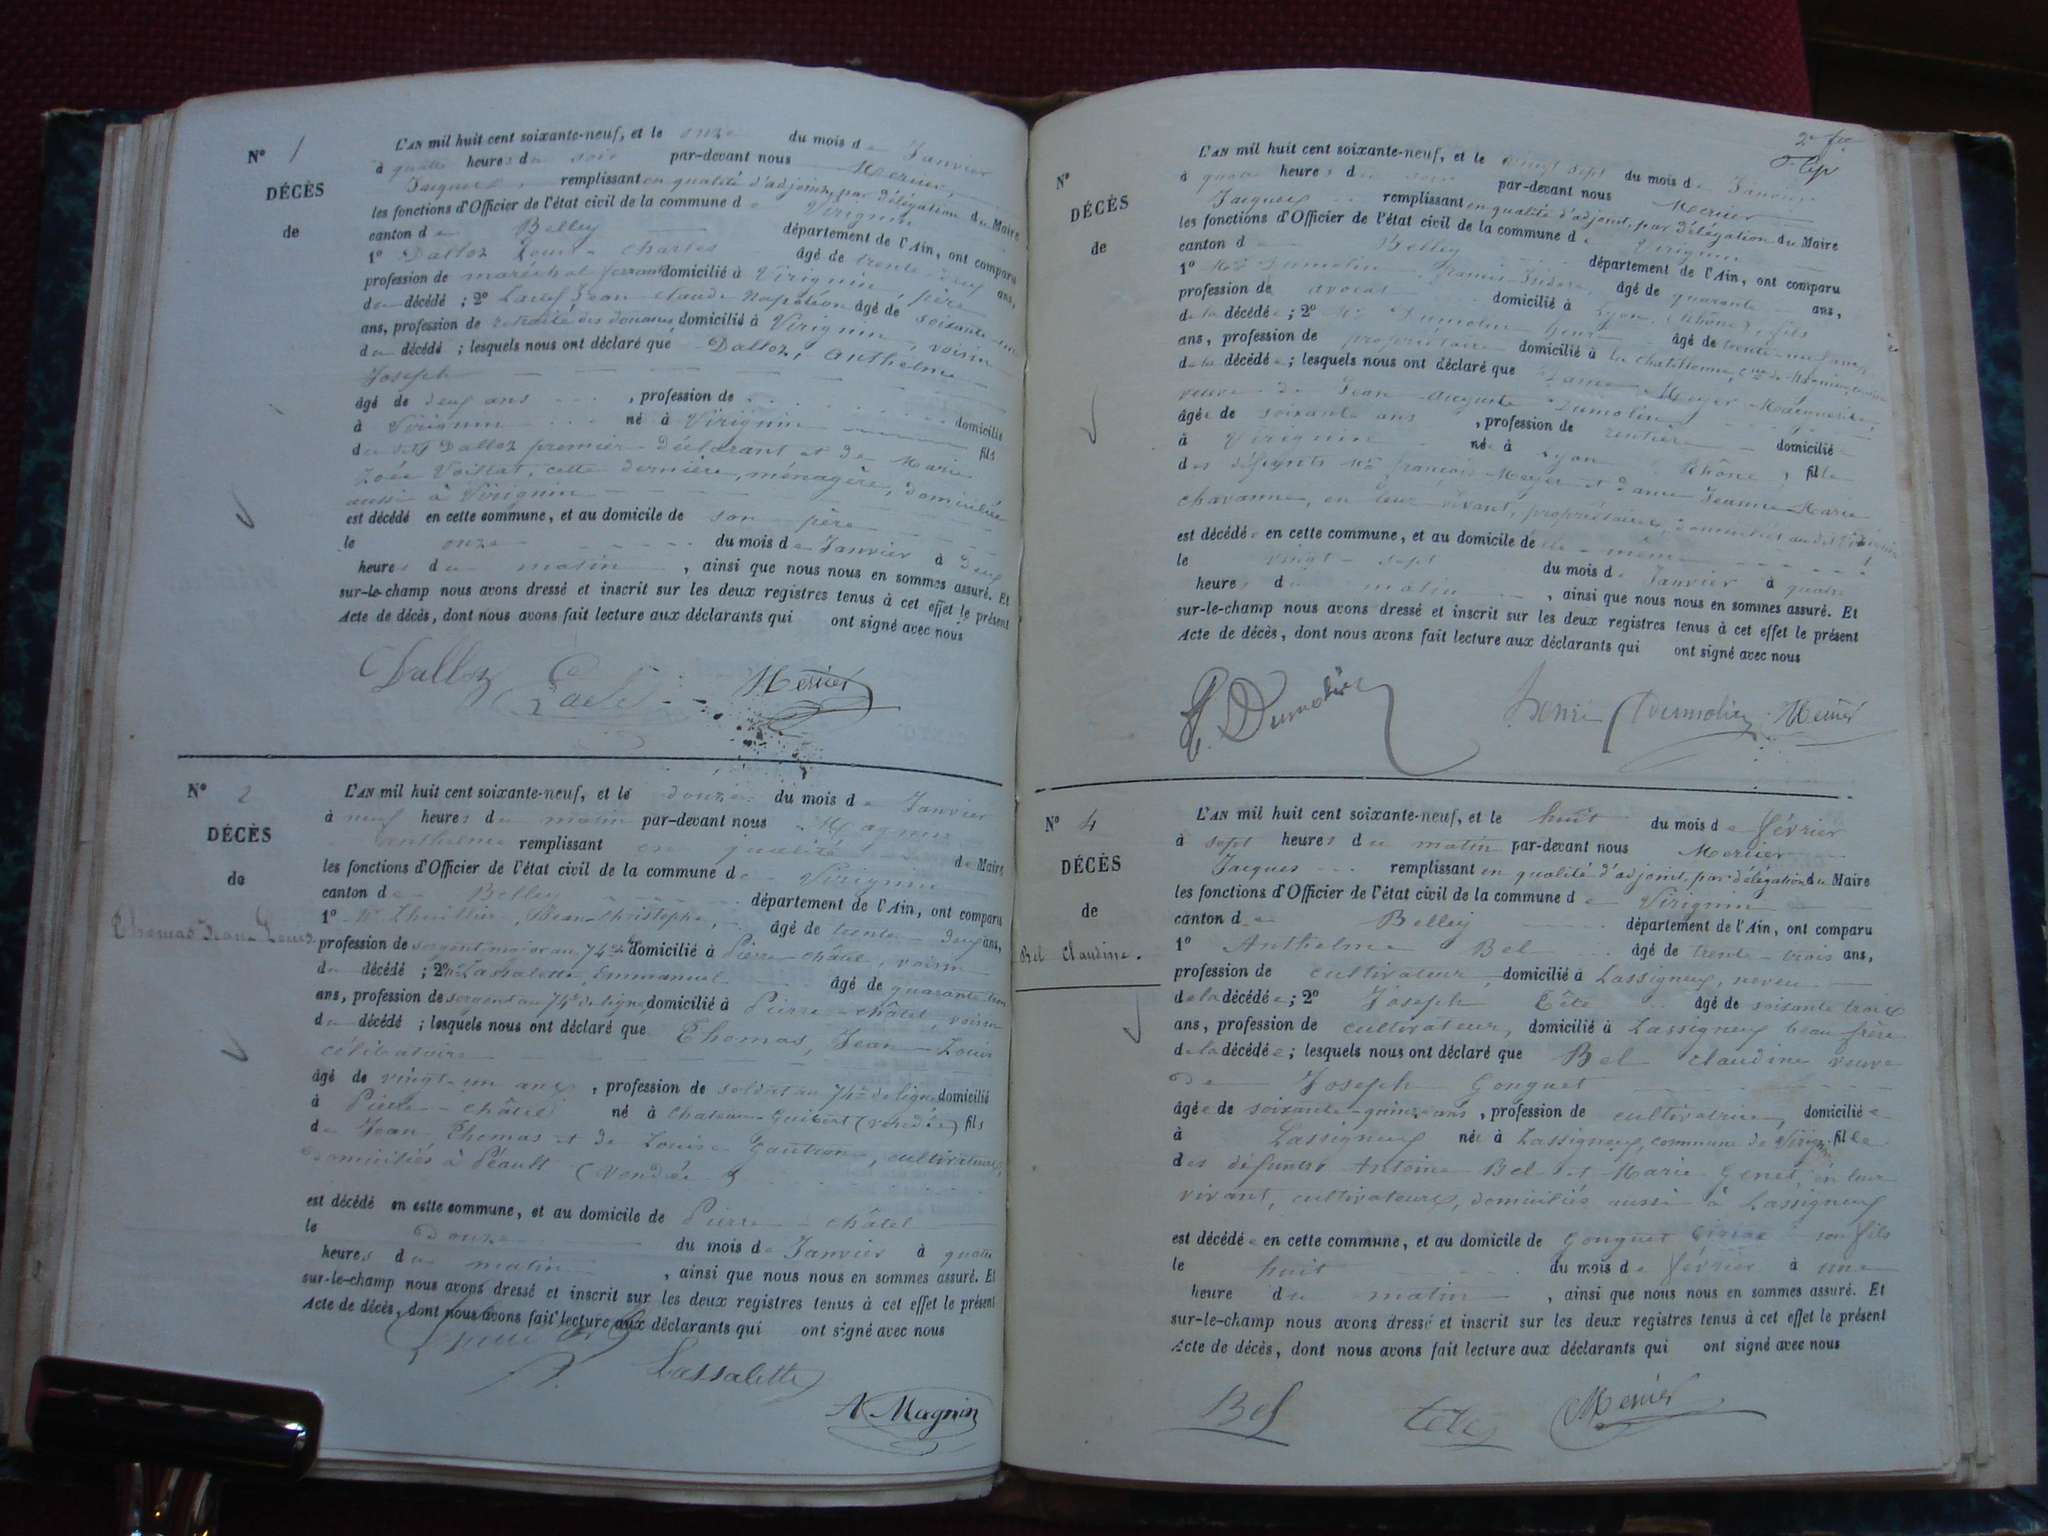 N° 1
DÉCÈS
de
L'AN mil huit cent soixante-neuf, et le onze du mois de Janvier
à quatre heures du soir par-devant nous Mercier
Jacques, remplissant en qualité d'adjoint, par délégation du Maire
les fonctions d'Officier de l'état civil de la commune de Virignin
canton de Belley département de l'Ain, ont comparu
1° Dalloz Louis-Charles âgé de trente-neuf ans,
profession de maréchal ferrant domicilié à Virignin, père
du décédé ; 2° Jean Claude Napoléon âgé de soixante-un
ans, profession de retraité des douanes, domicilié à Virignin, voisin
du décédé ; lesquels nous ont déclaré que Dalloz, Anthelme
Joseph
âgé de deux ans , profession de
à Virignin né à Virignin domicilié fils
du Dalloz premier déclarant et de Marie
Zoée , cette dernière, ménagère, domiciliée
aussi à Virignin
est décédé en cette commune, et au domicile de son père
le onze du mois de Janvier à deux
heures du matin , ainsi que nous nous en sommes assuré. Et
sur-le-champ nous avons dressé et inscrit sur les deux registres tenus à cet effet le présent
Acte de décès, dont nous avons fait lecture aux déclarants qui ont signé avec nous
Dalloz Mercier
N° 2
DÉCÈS
de
Thomas Jean-Louis
L'AN mil huit cent soixante-neuf, et le douze du mois de Janvier
à neuf heures du matin par-devant nous Magnin
Anthelme remplissant en qualité de Maire
les fonctions d'Officier de l'état civil de la commune de Virignin
canton de Belley département de l'Ain, ont comparu
1° Jean-Christophe, âgé de trente-deux ans,
profession de sergent major au 74e domicilié à Pierre-châtel, voisin
du décédé ; 2° Lassalette, Emmanuel âgé de quarante trois
ans, profession de sergent au 74e de ligne, domicilié à Pierre-châtel, voisin
du décédé ; lesquels nous ont déclaré que Thomas, Jean-Louis
célibataire
âgé de vingt-un ans , profession de soldat au 74e de ligne domicilié
à Pierre-châtel né à Chateau-Guibert (Vendée) fils
de Jean Thomas et de Louise Gautron, cultivateurs,
domiciliés à Péault (Vendée)
est décédé en cette commune, et au domicile de Pierre-châtel
le Douze du mois de Janvier à quatre
heures du matin , ainsi que nous nous en sommes assuré. Et
sur-le-champ nous avons dressé et inscrit sur les deux registres tenus à cet effet le présent
Acte de décès, dont nous avons fait lecture aux déclarants qui ont signé avec nous
Lassalette
A Magnin
N°
DÉCÈS
de
L'AN mil huit cent soixante-neuf, et le vingt sept du mois de Janvier
à quatre heures du soir par-devant nous Mercier
Jacques remplissant en qualité d'adjoint, par délégation du Maire
les fonctions d'Officier de l'état civil de la commune de Virignin
canton de Belley département de l'Ain, ont comparu
1° Mr Dumolin Francis Isidore âgé de quarante ans,
profession de avocat domicilié à Lyon, (Rhône), fils
de la décédée ; 2° Mr Dumolin Henri âgé de trente-
ans, profession de propriétaire domicilié à la
de la décédée ; lesquels nous ont déclaré que Dame Meyer Marguerite,
veuve de Jean Auguste Dumolin
âgée de soixante ans , profession de rentière domiciliée
à Virignin née à Lyon Rhône , fille
des défunts Mr François Meyer et dame Jeanne Marie
Chavanne, en leur vivant, propriétaires, domiciliés
est décédée en cette commune, et au domicile de elle-même
le vingt-sept du mois de Janvier à quatre
heures du matin , ainsi que nous nous en sommes assuré. Et
sur-le-champ nous avons dressé et inscrit sur les deux registres tenus à cet effet le présent
Acte de décès, dont nous avons fait lecture aux déclarants qui ont signé avec nous
Dumolin Henri Dumolin Mercier
N° 4
DÉCÈS
de
Bel Claudine.
L'AN mil huit cent soixante-neuf, et le huit du mois de Février
à sept heures du matin par-devant nous Mercier
Jacques remplissant en qualité d'adjoint, par délégation du Maire
les fonctions d'Officier de l'état civil de la commune de Virignin
canton de Belley département de l'Ain, ont comparu
1° Anthelme Bel âgé de trente-trois ans,
profession de cultivateur, domicilié à Lassigneux, neveu
de la décédée ; 2° Joseph Tête âgé de soixante trois
ans, profession de cultivateur, domicilié à Lassigneux beau frère
de la décédée ; lesquels nous ont déclaré que Bel Claudine veuve
de Joseph Gonguet
âgée de soixante-quinze ans , profession de cultivatrice, domiciliée
à Lassigneux née à Lassigneux, commune de Virignin fille
des défunts Antoine Bel et Marie Genet, en leur
vivant, cultivateurs, domiciliés aussi à Lassigneux
est décédée en cette commune, et au domicile de Gonguet son fils
le huit du mois de février à une
heure du matin , ainsi que nous nous en sommes assuré. Et
sur-le-champ nous avons dressé et inscrit sur les deux registres tenus à cet effet le présent
Acte de décès, dont nous avons fait lecture aux déclarants qui ont signé avec nous
Bel tete Mercier